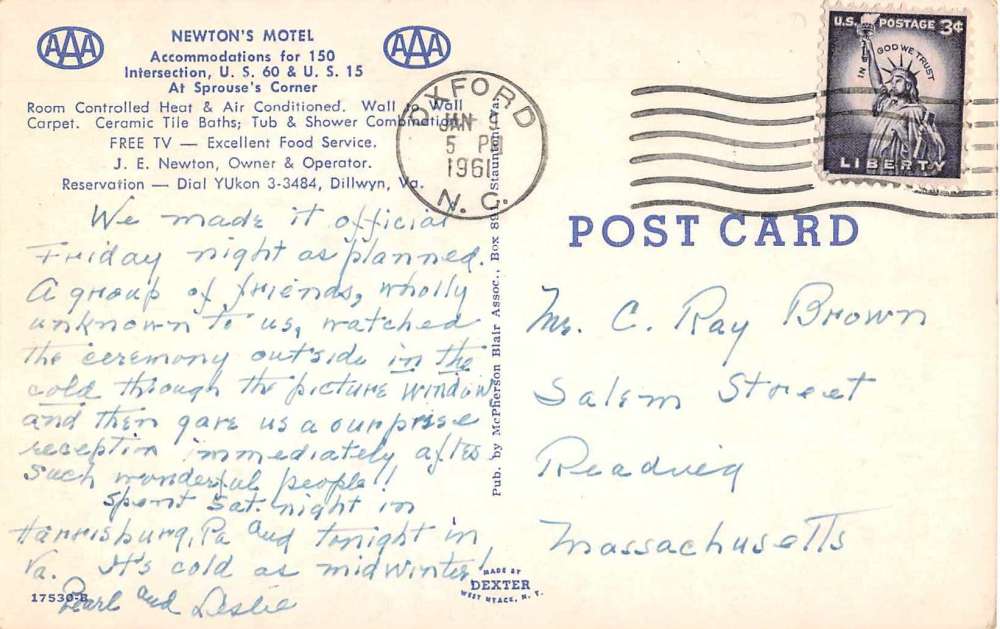 AAA
AAA
NEWTON'S MOTEL
Accommodations for 150
Intersection, U. S. 60 & U. S. 15
At Sprouse's Corner
Room Controlled Heat & Air Conditioned. Wall to Wall
Carpet. Ceramic Tile Baths; Tub & Shower Combination.
FREE TV — Excellent Food Service.
J. E. Newton, Owner & Operator.
Reservation — Dial YUkon 3-3484, Dillwyn, Va.
OXFORD
JAN 9
5 PM
1961
N. C.
U.S. POSTAGE 3¢
IN GOD WE TRUST
LIBERTY
We made it official
Friday night as planned.
A group of friends, wholly
unknown to us, watched
the ceremony outside in the
cold through the picture window
and then gave us a surprise
reception immediately after
Such wonderful people!!
Spent Sat. night in
Harrisburg, Pa and tonight in
Va. It's cold as midwinter!
Pearl and Leslie
17530-B
Pub. by McPherson Blair Assoc., Box 891, Staunton, Va.
MADE BY
DEXTER
WEST NYACK, N. Y.
POST CARD
Mr. C. Ray Brown
Salem Street
Reading
Massachusetts